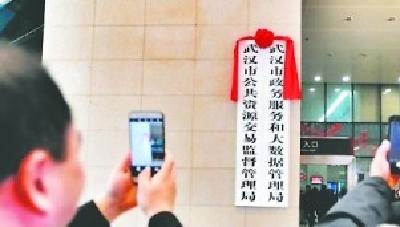 武汉市政务服务和大数据管理局
武汉市公共资源交易监督管理局
入口